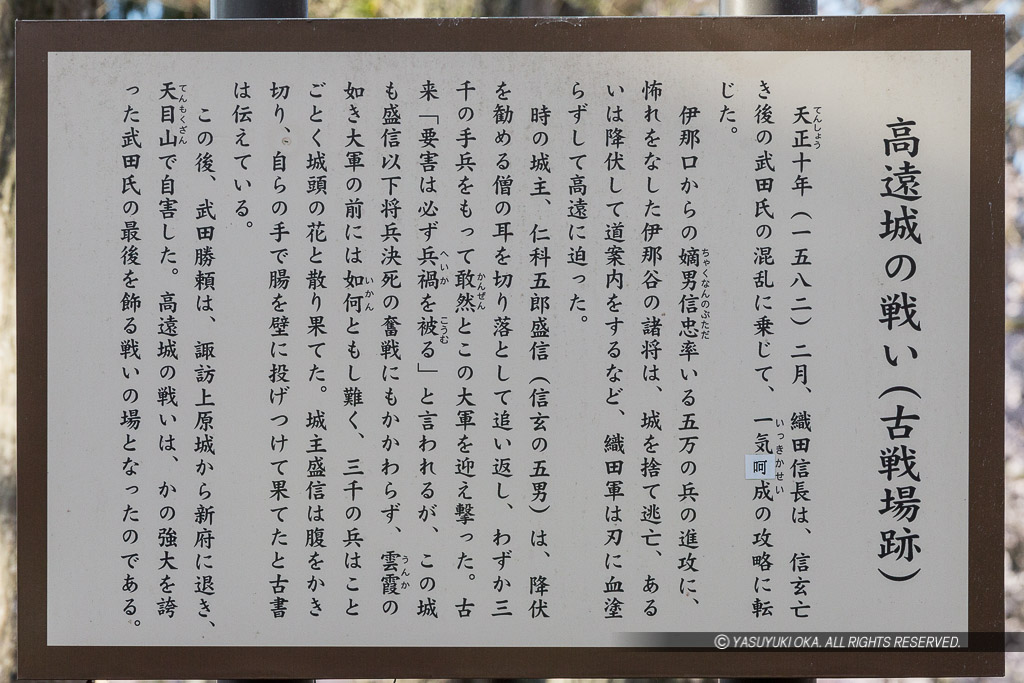 高遠城の戦い（古戦場跡）
天正十年（一五八二）二月、織田信長は、信玄亡
てんしょう
き後の武田氏の混乱に乗じて、一気呵成の攻略に転
いっきかせい
じた。
伊那口からの嫡男信忠率いる五万の兵の進攻に、
ちゃくなんのぶただ
怖れをなした伊那谷の諸将は、城を捨て逃亡、ある
いは降伏して道案内をするなど、織田軍は刃に血塗
らずして高遠に迫った。
時の城主、仁科五郎盛信（信玄の五男）は、降伏
を勧める僧の耳を切り落として追い返し、わずか三
千の手兵をもって敢然とこの大軍を迎え撃った。古
かんぜん
来「要害は必ず兵禍を被る」と言われるが、この城
へいか
こうむ
も盛信以下将兵決死の奮戦にもかかわらず、雲霞の
うんか
如き大軍の前には如何ともし難く、三千の兵はこと
いかん
ごとく城頭の花と散り果てた。城主盛信は腹をかき
切り、自らの手で腸を壁に投げつけて果てたと古書
は伝えている。
この後、武田勝頼は、諏訪上原城から新府に退き、
天目山で自害した。高遠城の戦いは、かの強大を誇
てんもくざん
った武田氏の最後を飾る戦いの場となったのである。
© YASUYUKI OKA. ALL RIGHTS RESERVED.